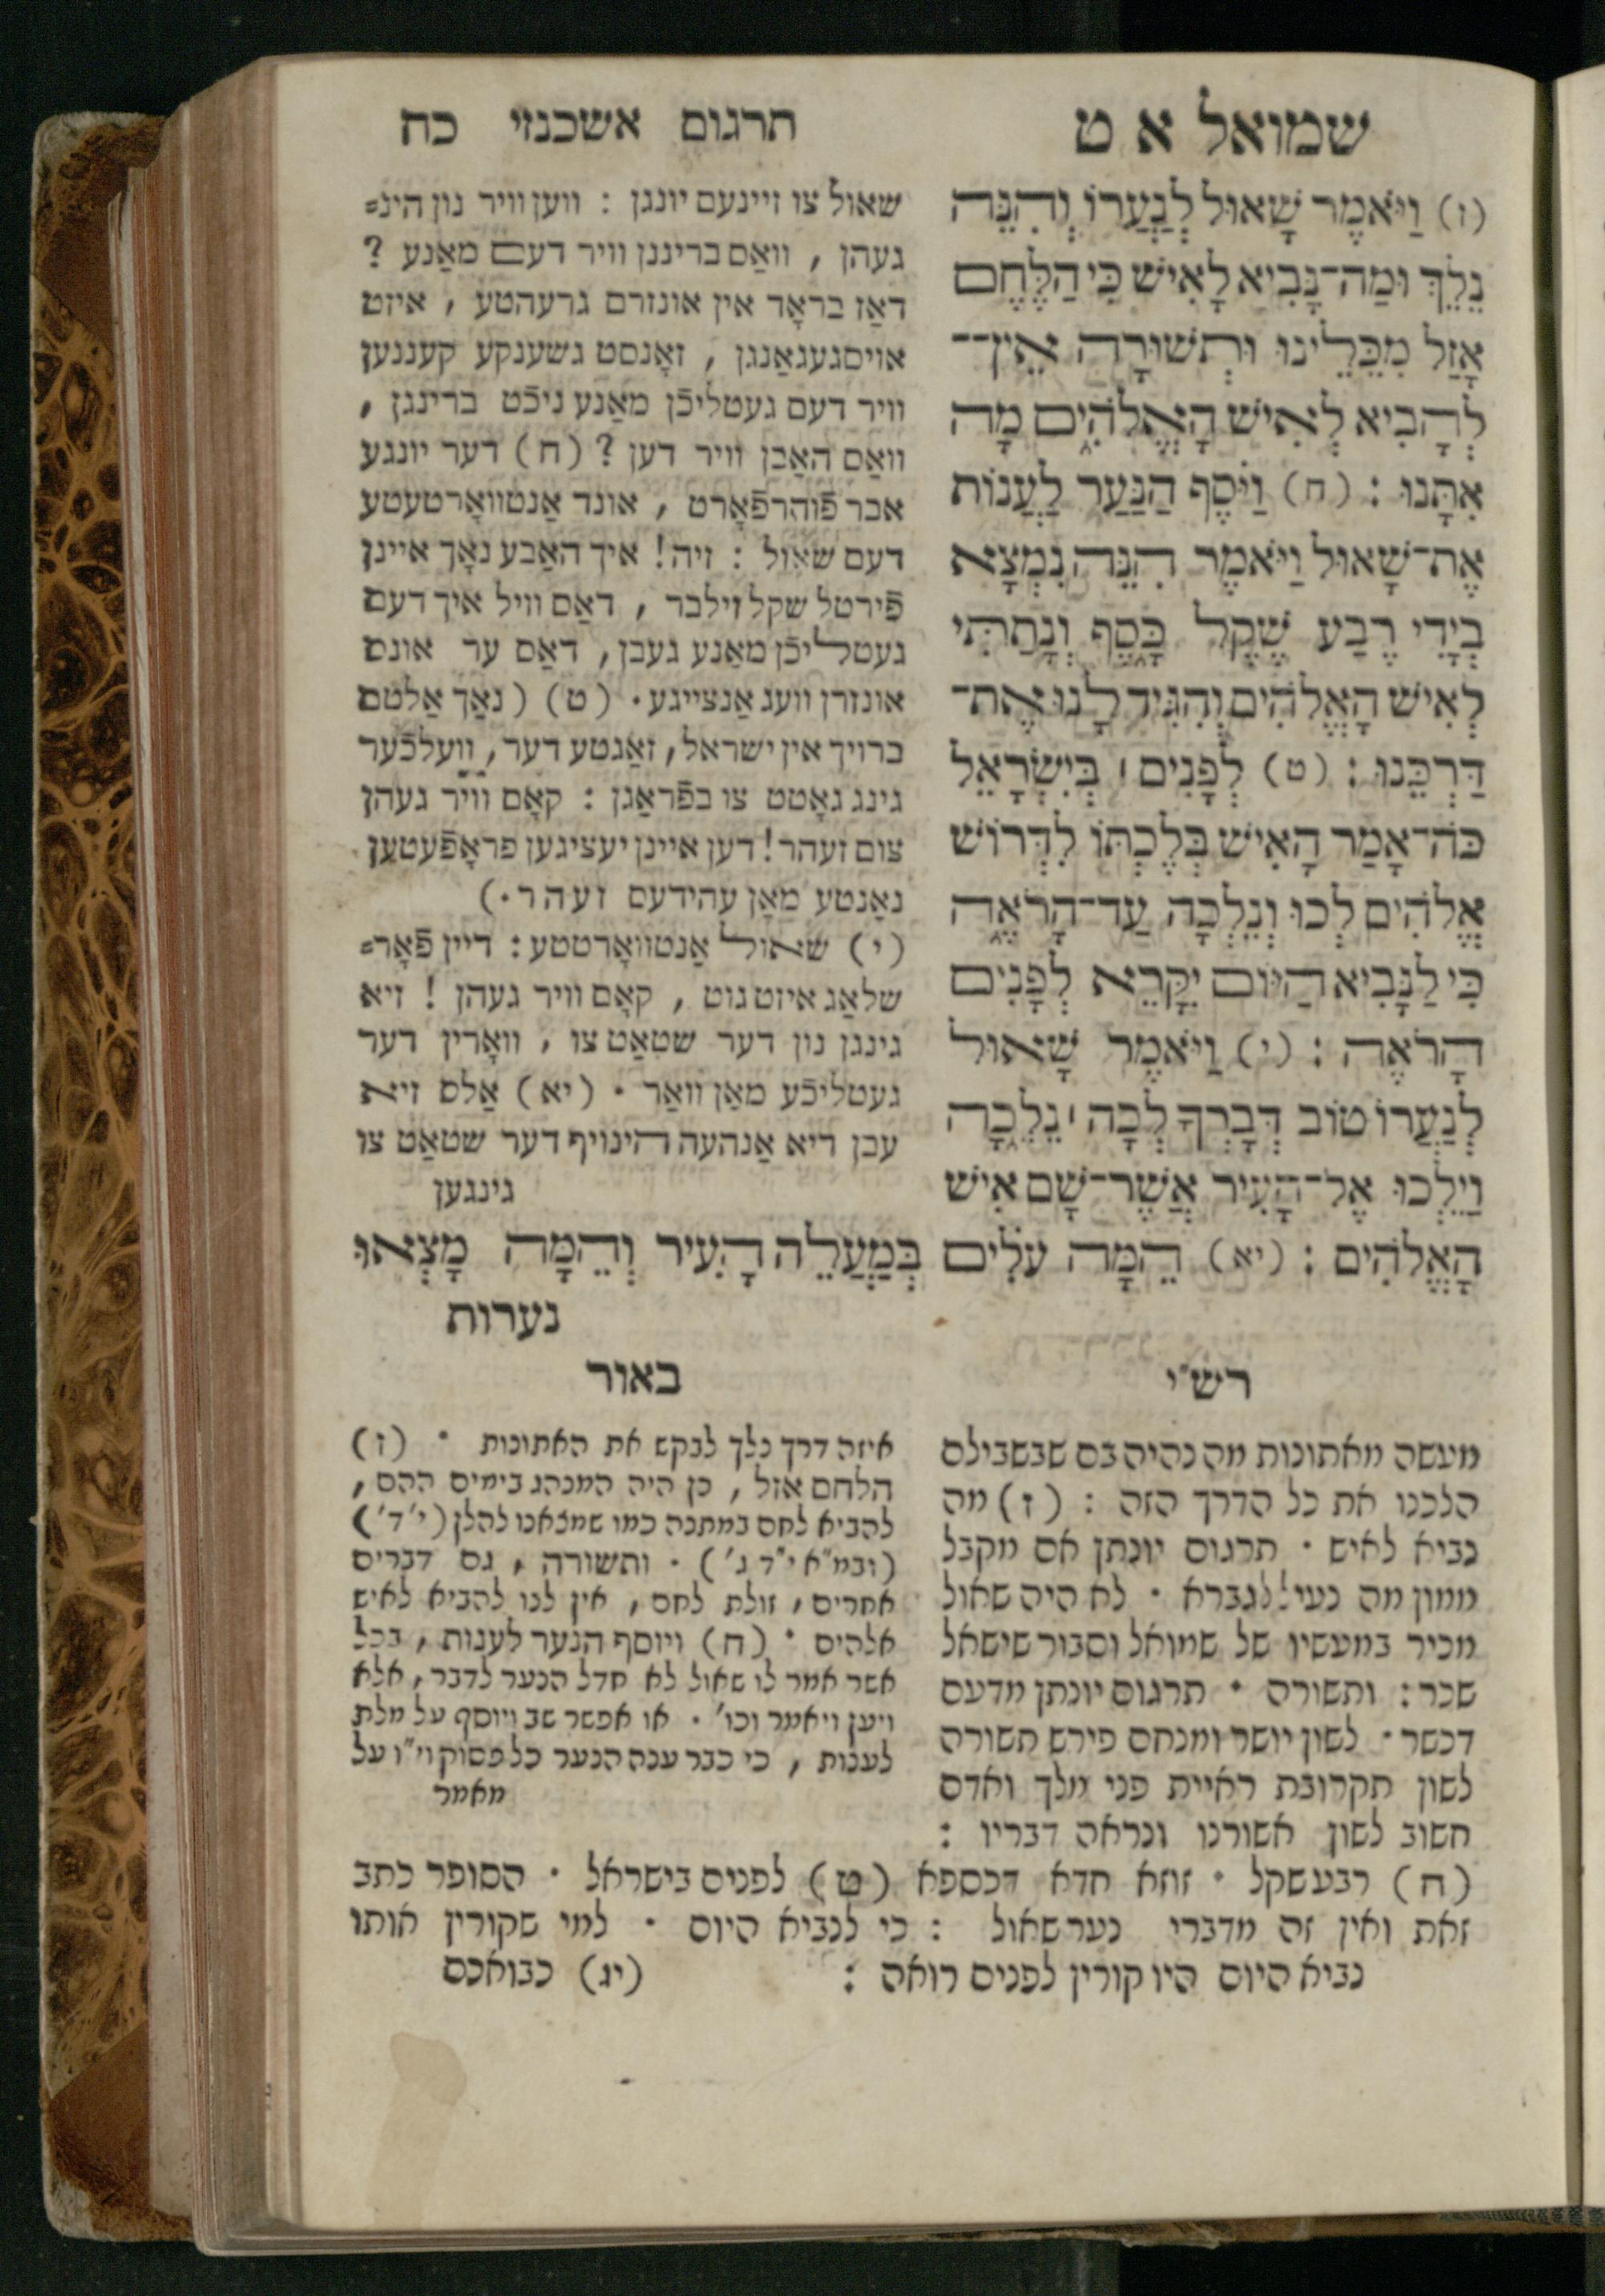 שמואל א ט
תרגום אשכנזי כח
(ז) וַיֹּאמֶר שָׁאוּל לְנַעֲרוֹ וְהִנֵּה
נֵלֵךְ וּמַה־נָּבִיא לָאִישׁ כִּי הַלֶּחֶם
אָזַל מִכֵּלֵינוּ וּתְשׁוּרָה אֵין־
לְהָבִיא לְאִישׁ הָאֱלֹהִים מָה
אִתָּנוּ : (ח) וַיֹּסֶף הַנַּעַר לַעֲנוֹת
אֶת־שָׁאוּל וַיֹּאמֶר הִנֵּה נִמְצָא
בְיָדִי רֶבַע שֶׁקֶל כָּסֶף וְנָתַתִּי
לְאִישׁ הָאֱלֹהִים וְהִגִּיד לָנוּ אֶת־
דַּרְכֵּנוּ : (ט) לְפָנִים ׀ בְּיִשְׂרָאֵל
כֹּה־אָמַר הָאִישׁ בְּלֶכְתּוֹ לִדְרוֹשׁ
אֱלֹהִים לְכוּ וְנֵלְכָה עַד־הָרֹאֶה
כִּי לַנָּבִיא הַיּוֹם יִקָּרֵא לְפָנִים
הָרֹאֶה : (י) וַיֹּאמֶר שָׁאוּל
לְנַעֲרוֹ טוֹב דְּבָרְךָ לְכָה ׀ נֵלֵכָה
וַיֵּלְכוּ אֶל־הָעִיר אֲשֶׁר־שָׁם אִישׁ
הָאֱלֹהִים : (יא) הֵמָּה עֹלִים בְּמַעֲלֵה הָעִיר וְהֵמָּה מָצְאוּ
נערות
שאול צו זיינעם יונגן : ווען וויר נון הינ=
געהן , וואַס ברינגן וויר דעם מאַנע ?
דאַז בראָד אין אונזרם גרעהטע , איזט
אויסגעגאַנגן , זאָנסט גשענקע קעננען
וויר דעם געטליכֿן מאַנע ניכֿט ברינגן ,
וואַס האַבן וויר דען ? (ח) דער יונגע
אבר פֿוהרפֿאָרט , אונד אַנטוואָרטעטע
דעם שאול : זיה! איך האַבע נאָך איינן
פֿירטל שקל זילבר , דאַס וויל איך דעם
געטליכֿן מאַנע געבן , דאַס ער אונס
אונזרן וועג אַנצייגע . (ט) (נאַך אַלטם
ברויך אין ישראל , זאַגטע דער , וועלכֿער
גינג גאָטט צו בפֿראַגן : קאָם וויר געהן
צום זעהר! דען איינן יעציגען פראָפֿעטען
נאַנטע מאַן עהידעם זעהר .)
(י) שאול אַנטוואָרטטע : דיין פֿאָר=
שלאַג איזט גוט , קאָם וויר געהן ! זיא
גינגן נון דער שטאַט צו , וואָרין דער
געטליכֿע מאַן וואַר . (יא) אַלס זיא
עבן דיא אַנהעהה הינויף דער שטאַט צו
גינגען
רש״י
מעשה מאתונות מה נהיה בם שבשבילם
הלכנו את כל הדרך הזה : (ז) מה
נביא לאיש . תרגום יונתן אם מקבל
ממון מה נעיל לגברא . לא היה שאול
מכיר במעשיו של שמואל וסבור שישאל
שכר : ותשורה . תרגום יונתן מדעם
דכשר . לשון יושר ומנחם פירש תשורה
לשון תקרובת ראיית פני מלך ואדם
חשוב לשון אשורנו ונראה דבריו :
(ח) רבע שקל . זוזא חדא דכספא (ט) לפנים בישראל . הסופר כתב
זאת ואין זה מדברי נער שאול : כי לנביא היום . למי שקורין אותו
נביא היום היו קורין לפנים רואה : (יג) כבואכם
באור
איזה דרך נלך לבקש את האתונות . (ז)
הלחם אזל , כן היה המנהג בימים ההם ,
להביא לחם במתנה כמו שמצאנו להלן (י׳ ד׳)
(ובמ״א י״ד ג׳) . ותשורה , גם דברים
אחרים , זולת לחם , אין לנו להביא לאיש
אלהים . (ח) ויוסף הנער לענות , בכל
אשר אמר לו שאול לא חדל הנער לדבר , אלא
ויען ויאמר וכו׳ . או אפשר שב ויוסף על מלת
לענות , כי כבר ענה הנער כל פסוק וי״ו על
מאמר